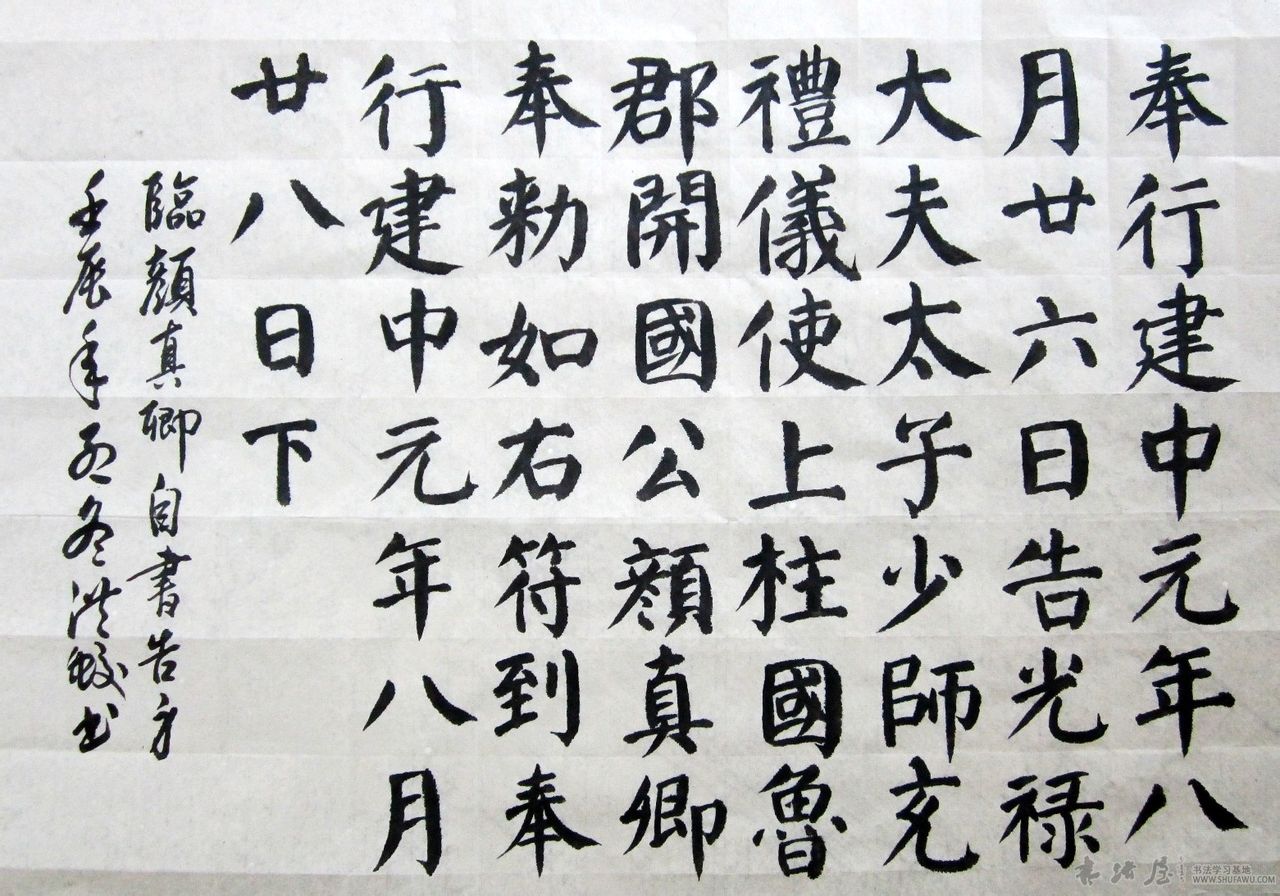 奉行建中元年八
月廿六日告光禄
大夫太子少師充
禮儀使上柱國魯
郡開國公顔真卿
奉勑如右符到奉
行建中元年八月
廿八日下
臨顔真卿自書告身
壬辰年初冬洪蛟书
书法屋
书法学习基地
WWW.SHUFAWU.COM